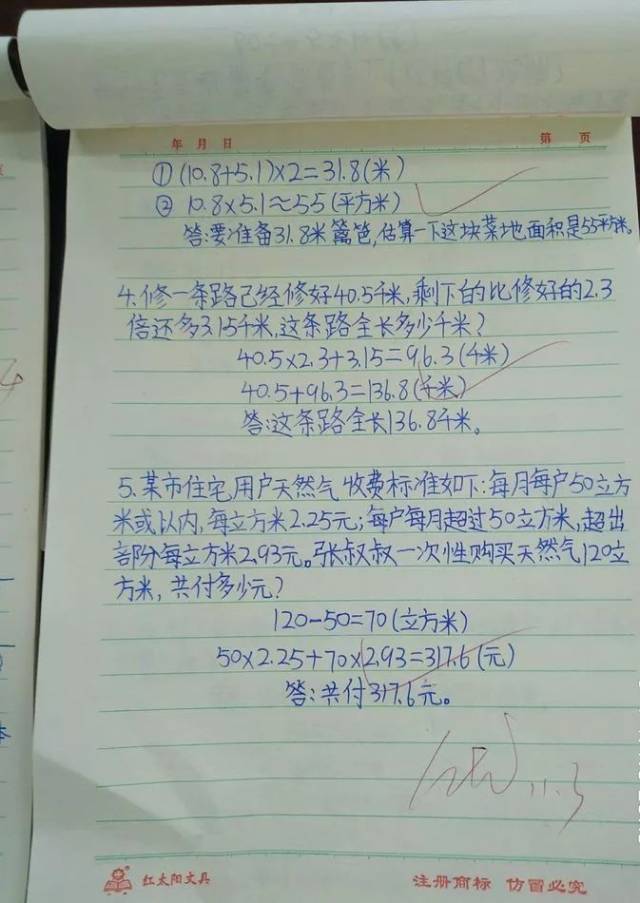 年 月 日
第 页
①(10.8+5.1)×2=31.8(米)
② 10.8×5.1≈55(平方米)
答:要准备31.8米篱笆,估算一下这块菜地面积是55平方米。
4.修一条路已经修好40.5千米,剩下的比修好的2.3
倍还多3.15千米,这条路全长多少千米?
40.5×2.3+3.15=96.3(千米)
40.5+96.3=136.8(千米)
答:这条路全长136.8千米。
5.某市住宅用户天然气收费标准如下:每月每户50立方
米或以内,每立方米2.25元;每户每月超过50立方米,超出
部分每立方米2.93元。张叔叔一次性购买天然气120立
方米,共付多少元?
120-50=70(立方米)
50×2.25+70×2.93=317.6(元)
答:共付317.6元。
11.3
红太阳文具
注册商标 仿冒必究